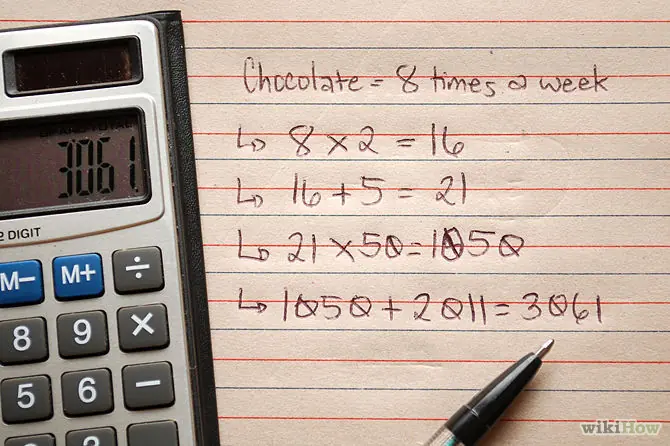 Chocolate = 8 times a week
↳ 8 × 2 = 16
↳ 16 + 5 = 21
↳ 21 × 50 = 1050
↳ 1050 + 2011 = 3061
3061
DIGIT
M− M+ ÷
8 9 ×
5 6 −
2 3
wikiHow